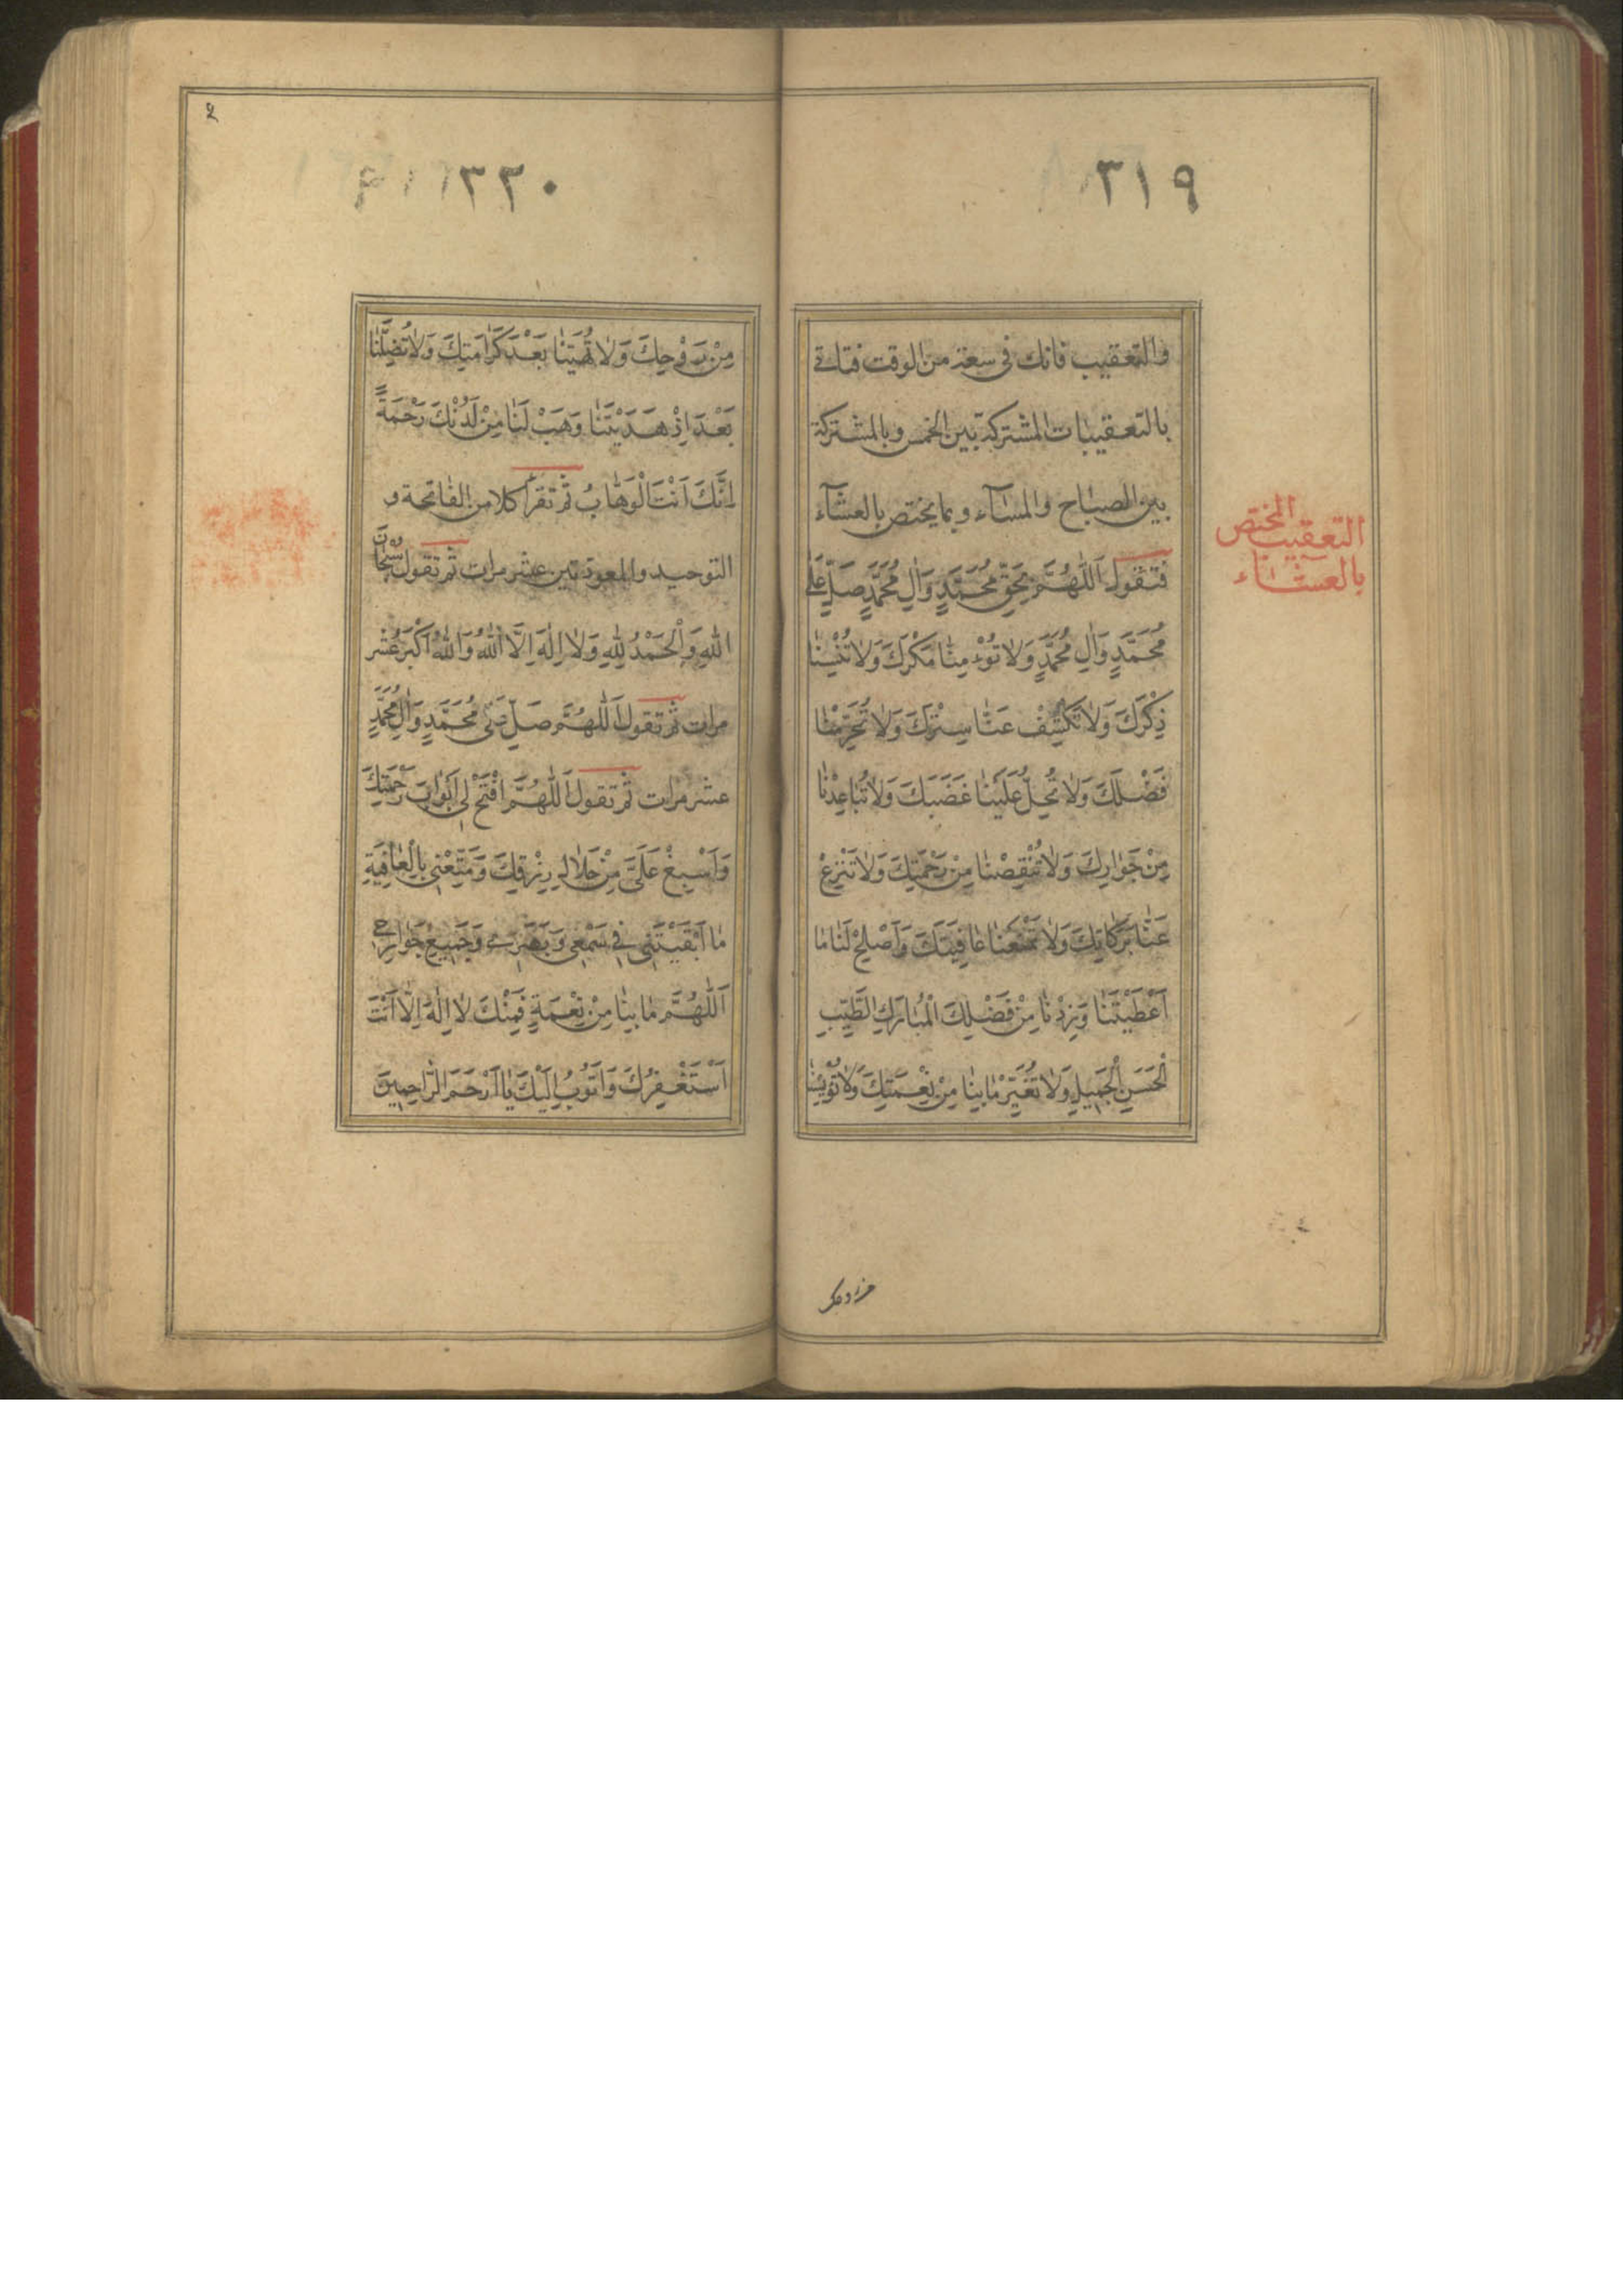 ٣١٩
والتعقيب فانك فى سعة من الوقت فتاتى
بالتعقيبات المشتركة بين الخمس وبالمشتركة
بين الصباح والمسآء وبما يختص بالعشآء
فتقول اَللّٰهُمَّ بِحَقِّ مُحَمَّدٍ وَاٰلِ مُحَمَّدٍ صَلِّ عَلٰى
مُحَمَّدٍ وَاٰلِ مُحَمَّدٍ وَلاٰ تُؤْمِنّٰا مَكْرَكَ وَلاٰ تُنْسِنٰا
ذِكْرَكَ وَلاٰ تَكْشِفْ عَنّٰا سِتْرَكَ وَلاٰ تَحْرِمْنٰا
فَضْلَكَ وَلاٰ تُحِلَّ عَلَيْنٰا غَضَبَكَ وَلاٰ تُبٰاعِدْنٰا
مِنْ جَوٰارِكَ وَلاٰ تُنْقِصْنٰا مِنْ رَحْمَتِكَ وَلاٰ تَنْزِعْ
عَنّٰا بَرَكٰاتِكَ وَلاٰ تَمْنَعْنٰا عٰافِيَتَكَ وَاَصْلِحْ لَنٰا مٰا
اَعْطَيْتَنٰا وَزِدْنٰا مِنْ فَضْلِكَ الْمُبٰارَكِ الطَّيِّبِ
الْحَسَنِ الْجَمِيلِ وَلاٰ تُغَيِّرْ مٰا بِنٰا مِنْ نِعْمَتِكَ وَلاٰ تُؤْيِسْنٰا
التعقيب المختص
بالعشاء
٣٢٠
مِنْ رَوْحِكَ وَلاٰ تُهِنّٰا بَعْدَ كَرٰامَتِكَ وَلاٰ تُضِلَّنٰا
بَعْدَ اِذْ هَدَيْتَنٰا وَهَبْ لَنٰا مِنْ لَدُنْكَ رَحْمَةً
اِنَّكَ اَنْتَ الْوَهّٰابُ ثم تقرأ كلا من الفاتحة و
التوحيد والمعوذتين عشر مرات ثم تقول سُبْحٰانَ
اللّٰهِ وَالْحَمْدُ لِلّٰهِ وَلاٰ اِلٰهَ اِلَّا اللّٰهُ وَاللّٰهُ اَكْبَرُ عشر
مرات ثم تقول اَللّٰهُمَّ صَلِّ عَلٰى مُحَمَّدٍ وَاٰلِ مُحَمَّدٍ
عشر مرات ثم تقول اَللّٰهُمَّ افْتَحْ لِى اَبْوٰابَ رَحْمَتِكَ
وَاَسْبِغْ عَلَىَّ مِنْ حَلاٰلِ رِزْقِكَ وَمَتِّعْنِى بِالْعٰافِيَةِ
مٰا اَبْقَيْتَنِى فِى سَمْعِى وَبَصَرِى وَجَمِيعِ جَوٰارِحِى
اَللّٰهُمَّ مٰا بِنٰا مِنْ نِعْمَةٍ فَمِنْكَ لاٰ اِلٰهَ اِلّٰا اَنْتَ
اَسْتَغْفِرُكَ وَاَتُوبُ اِلَيْكَ يٰا اَرْحَمَ الرّٰاحِمِينَ